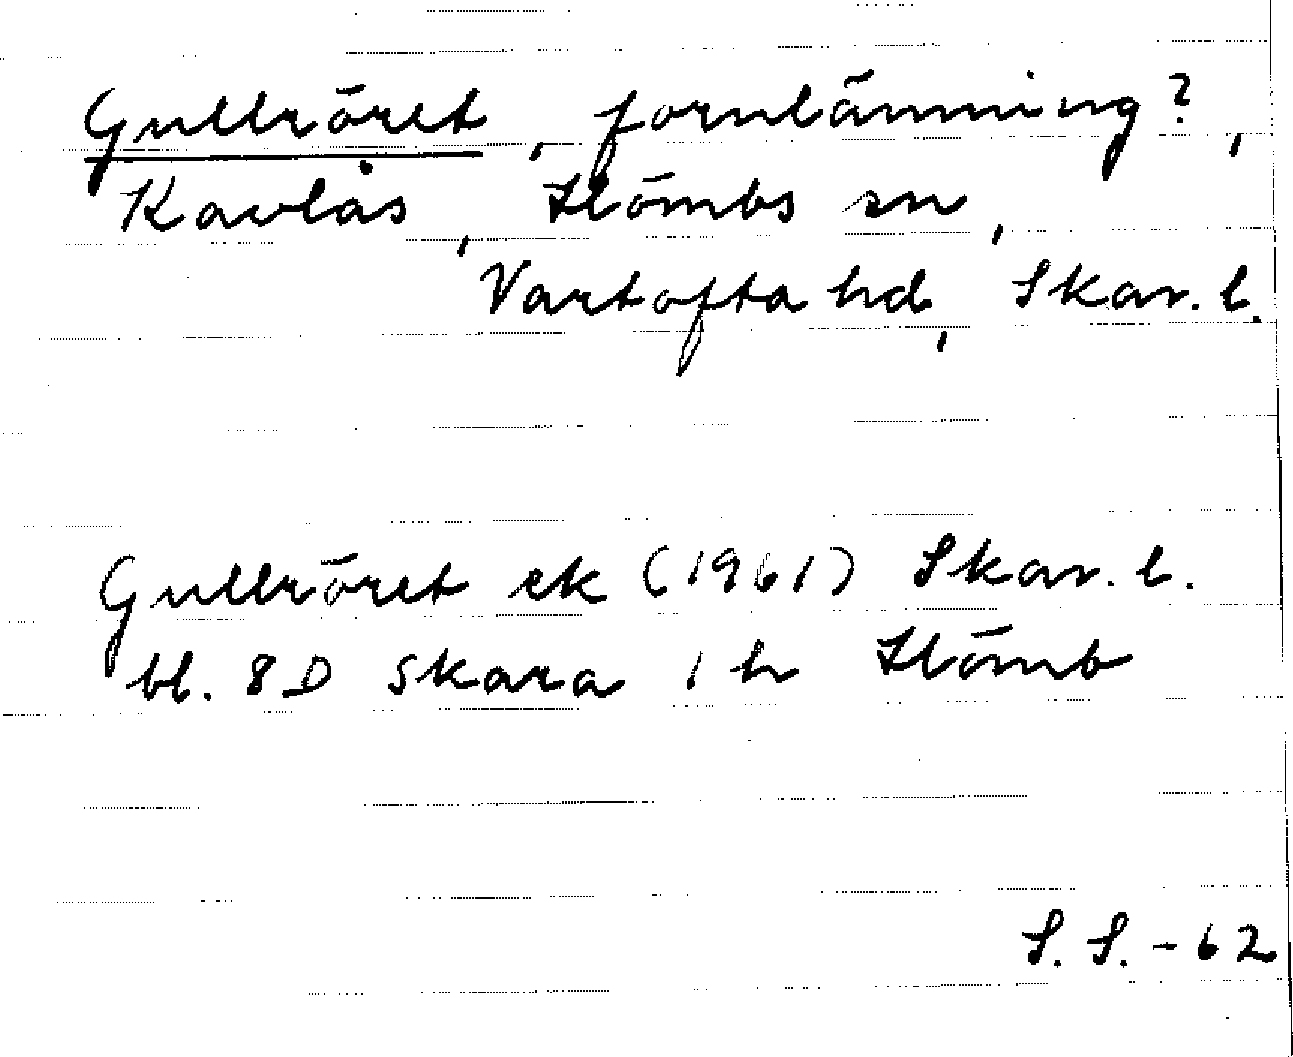 Gullröret, fornlämning?,
Kavlås, Slömbs sn,
Vartofta hd, Skar. l.
Gullröret ek (1961) Skar. l.
bl. 8D Skara 1 h Slömb
S. S. - 62